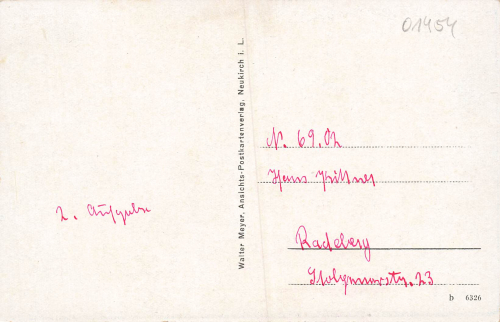 01454
2. Aufgabe
Walter Meyer, Ansichts-Postkartenverlag, Neukirch i. L.
N. 69.
Hans
Radeberg
23
b 6326